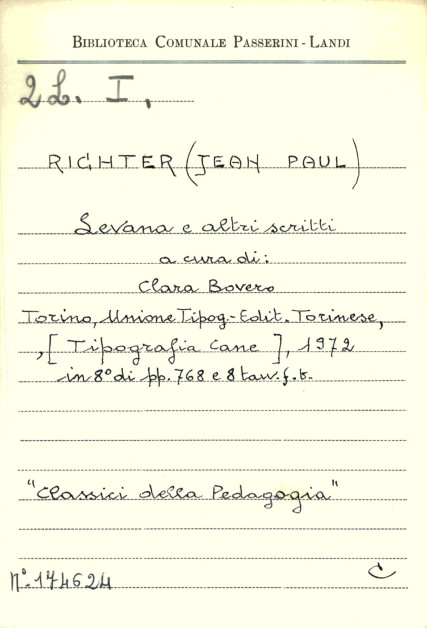 BIBLIOTECA COMUNALE PASSERINI - LANDI
2L. I.
RICHTER (JEAN PAUL)
Levana e altri scritti
a cura di:
Clara Bovero
Torino, Unione Tipog.-Edit. Torinese,
,[Tipografia Cane], 1972
in 8° di pp. 768 e 8 tav. f. t.
"Classici della Pedagogia"
N°. 174624
C